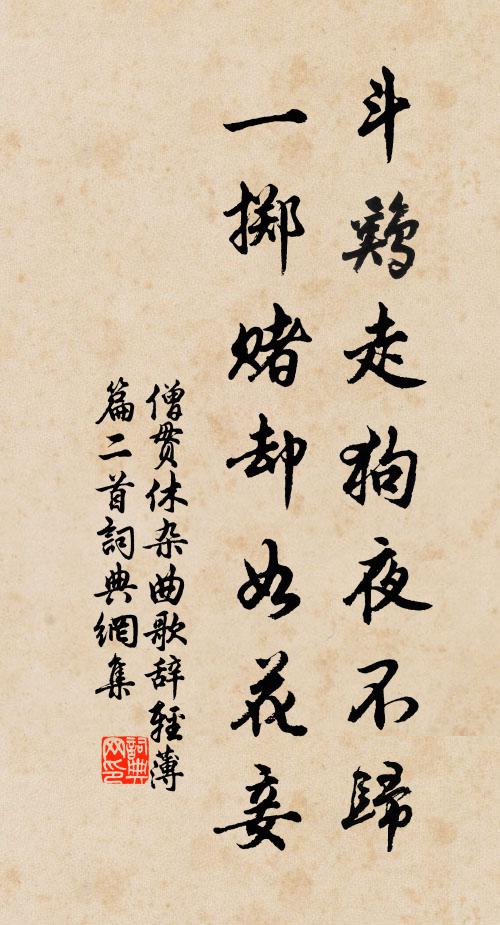 斗鷄走狗夜不歸
一掷赌却如花妾
僧贯休杂曲歌辞輕薄
篇二首詞典網集
詞典
网印